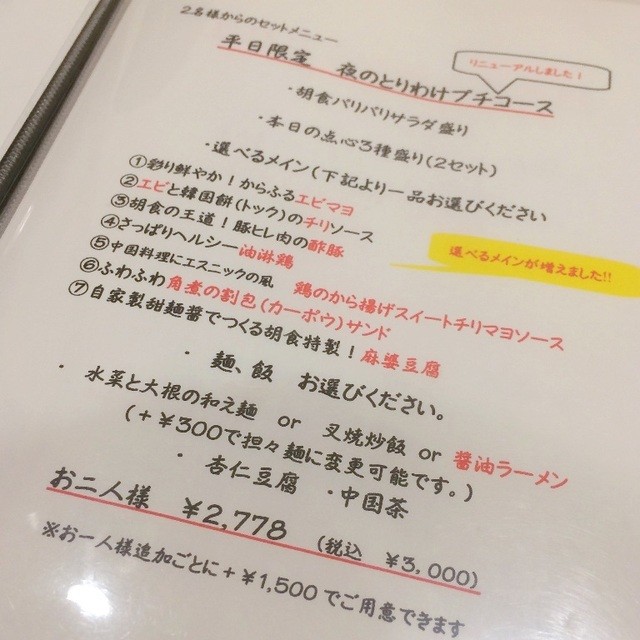 2名様からのセットメニュー
平日限定 夜のとりわけプチコース
リニューアルしました!
・胡食パリパリサラダ盛り
・本日の点心3種盛り(2セット)
・選べるメイン(下記より一品お選びください
①彩り鮮やか!からふるエビマヨ
②エビと韓国餅(トック)のチリソース
③胡食の王道!豚ヒレ肉の酢豚
④さっぱりヘルシー油淋鶏
選べるメインが増えました!!
⑤中国料理にエスニックの風 鶏のから揚げスイートチリマヨソース
⑥ふわふわ角煮の割包(カーポウ)サンド
⑦自家製甜麺醬でつくる胡食特製!麻婆豆腐
・麺、飯 お選びください。
・水菜と大根の和え麺 or 叉焼炒飯 or 醤油ラーメン
(+¥300で担々麺に変更可能です。)
・杏仁豆腐 ・中国茶
お二人様 ¥2,778 (税込 ¥3,000)
※お一人様追加ごとに+¥1,500でご用意できます